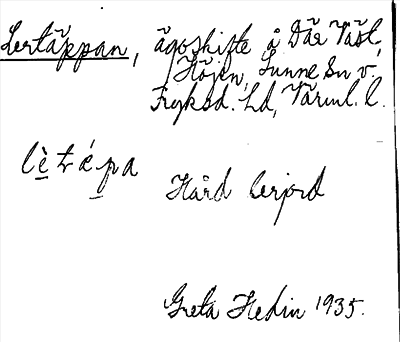 Lertäppan, ägoskifte å Där Väst,
Höjen, Sunne Sn v.
Fryksd. Hd, Värml. l.
lètǽpa
Hård lerjord
Greta Hedin 1935.